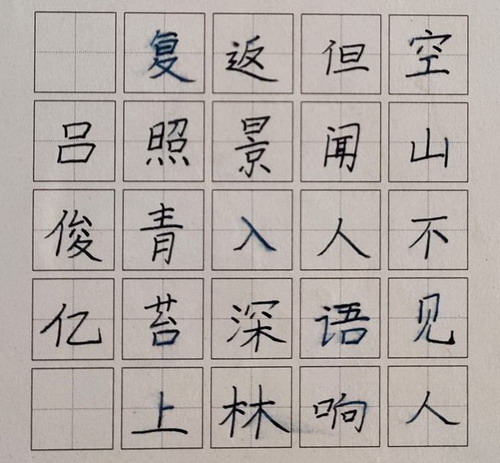 空山不见人
但闻人语响
返景入深林
复照青苔上
吕俊亿